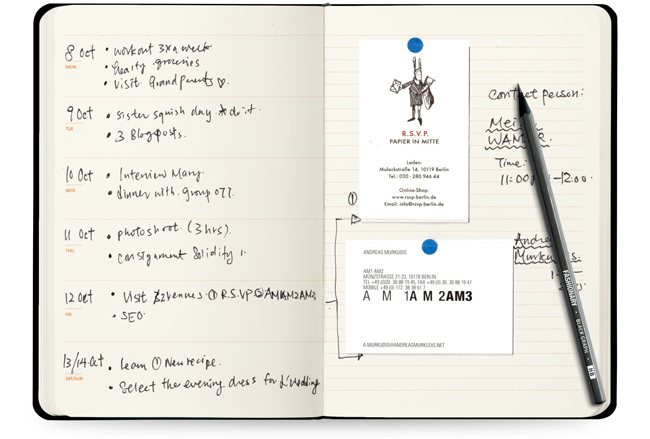 8 Oct
MON
• workout 3x a week
• healty groceries
• visit Grandparents ♡.
9 Oct
TUE
• sister squish day
• 3 Blogposts.
10 Oct
WED
• Interview Mary
• dinner with group 077.
11 Oct
THU
• photoshoot (3 hrs).
• consignment Solidity
12 Oct
FRI
• Visit 2 venues. ① R.S.V.P ② AM1AM2AM3
• SEO
13/14 Oct
SAT/SUN
• learn ① New recipe.
• Select the evening dress for Wedding
①
R.S.V.P.
PAPIER IN MITTE
Laden:
Mulackstraße 14, 10119 Berlin
Tel.: 030 - 280 946 44
Online-Shop:
www.rsvp-berlin.de
Email: info@rsvp-berlin.de
ANDREAS MURKUDIS
AM1 AM2
MÜNZSTRASSE 21-23, 10178 BERLIN
A M 1A M 2AM3
A.MURKUDIS@ANDREASMURKUDIS.NET
Contact person:
Time:
11:00 -12:00.
Murkudis
FASHIONARY • BLACK GRAPH • HB